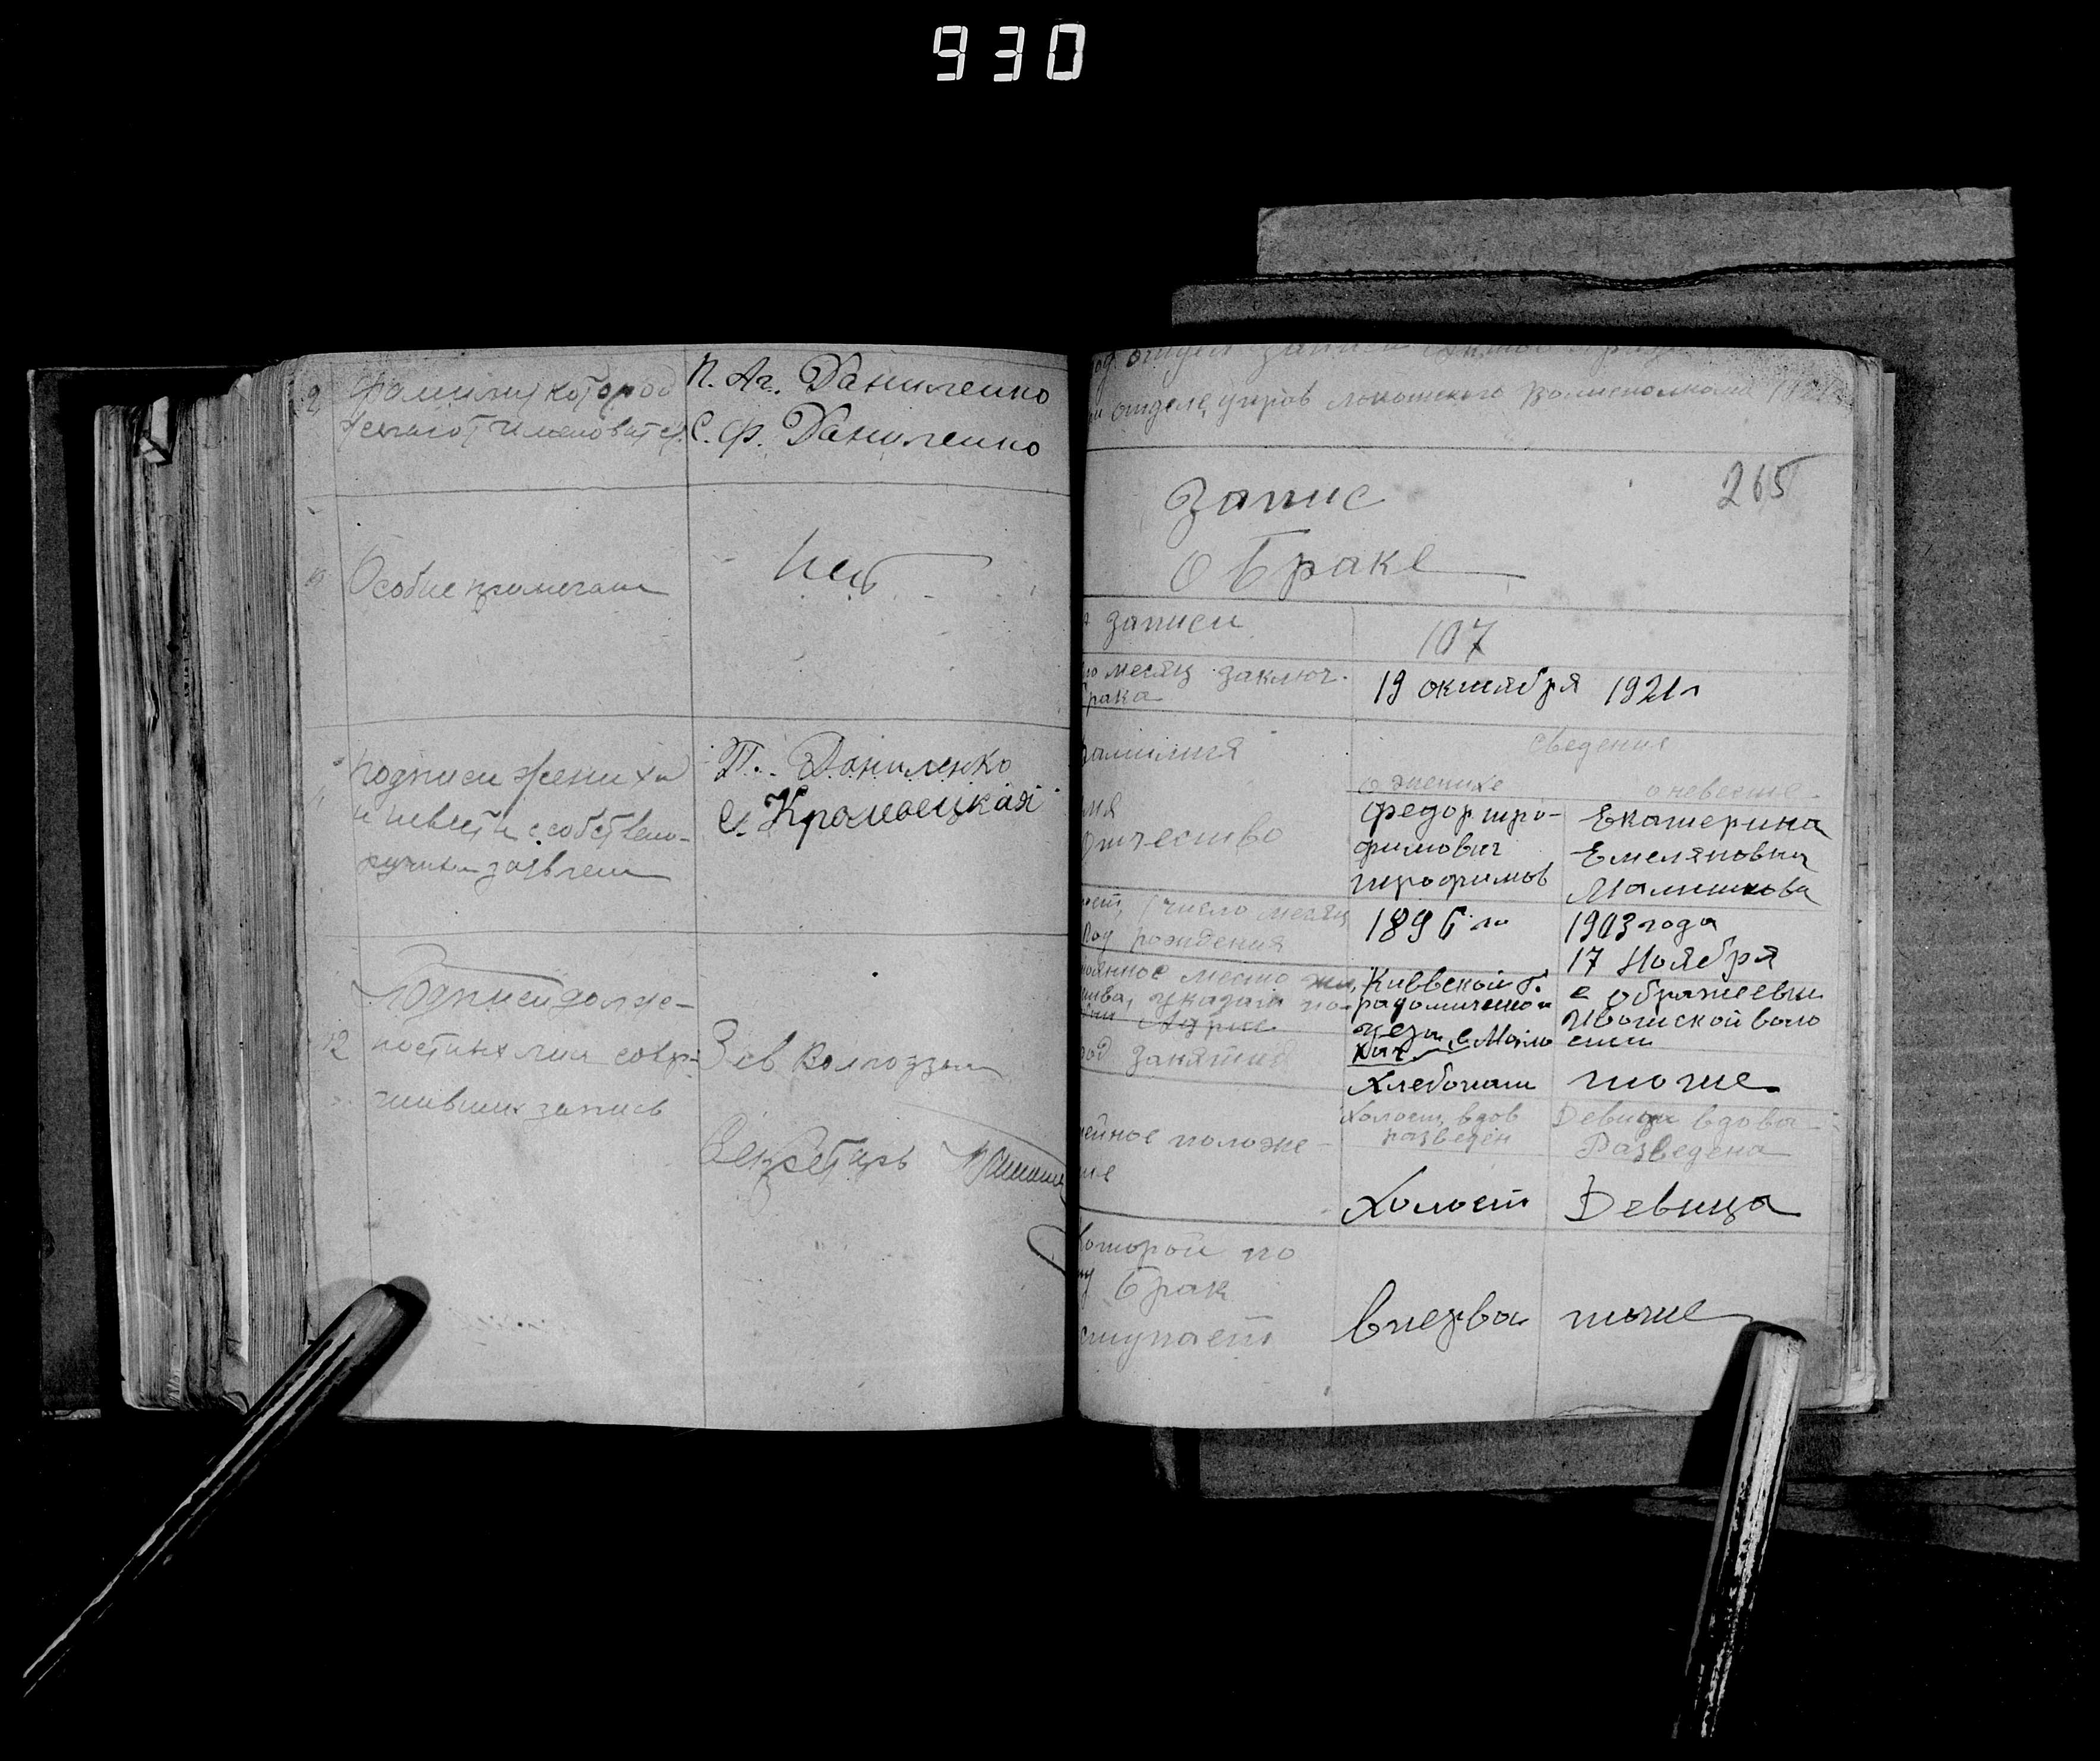 930
9 фамилию которой
желают именоватся
П. Аг. Даниленко
С. Ф. Даниленко
10 Особие примечани
Нет
11 подписи жениха
и невести о собствено-
ручном заявлени
П. Даниленко
С. Крамоецкая
12 Подписи долже-
ностних лиц совер-
шивших запись
Зав
Секретарь
отдел записи
отделе управ волисполкома 1921
265
Запис
О Браке
записи
107
месяц заключ.
брака
19 октября 1921г
Фамилия
Сведения
о женихе
о невесте
имя
отчество
Федор тро-
фимович
трофимов
Екатерина
Емеляновна
Малишкова
число месяц
год рождения
1896 го
1903 года
17 Ноября
место жи
указат по-
Адрис
Киевской г.
радомишско
уезд с Мали
с Ображеевки
Ивотской воло
сти
род занятий
Хлебопаш
тоже
семейное положе-
ние
Холост, вдов
разведен
Девица вдова
Разведена
Холост
Девица
Которой по
брак
вступает
Вперва
тоже